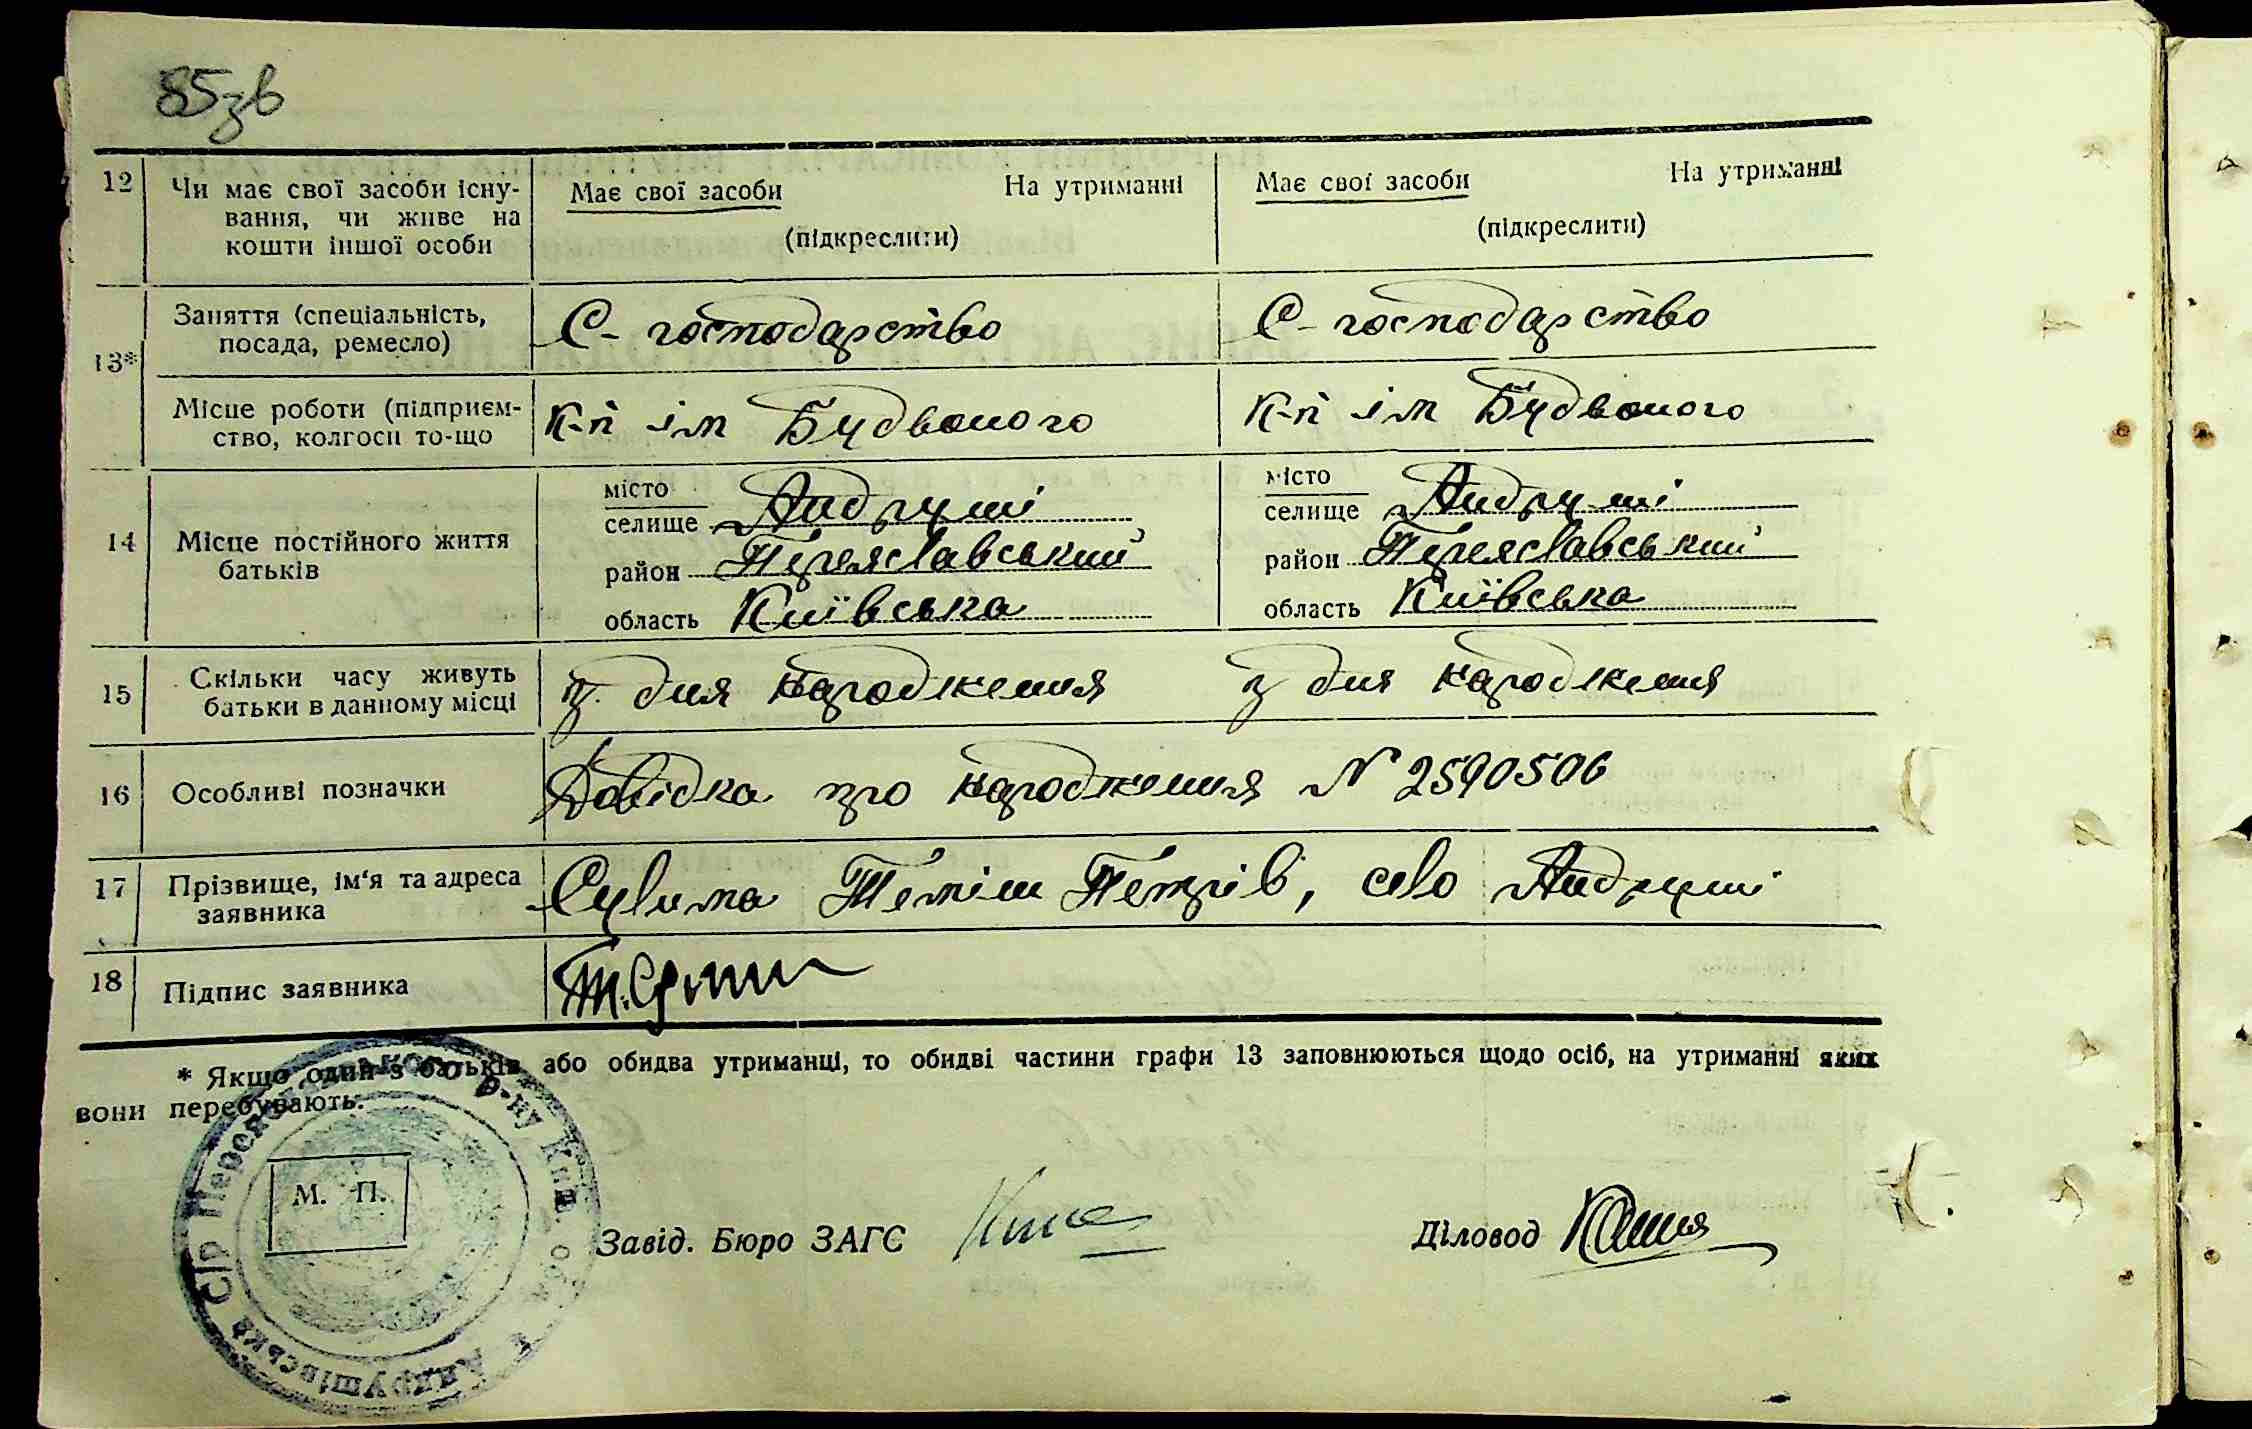 85зв
12 Чи має свої засоби існу- Має свої засоби На утриманні Має свої засоби На утриманні
вання, чи живе на
кошти іншої особи (підкреслити) (підкреслити)
13* Заняття (спеціальність, С-господарство С-господарство
посада, ремесло)
Місце роботи (підприєм- К-п ім Будьоного К-п ім Будьоного
ство, колгосп то-що
14 Місце постійного життя
батьків
місто місто
селище Андруші селище Андруші
район Переяславський район Переяславський
область Київська область Київська
15 Скільки часу живуть з дня народження з дня народження
батьки в данному місці
16 Особливі позначки Довідка про народження N 2590506
17 Прізвище, ім'я та адреса Сулима Теміш Петрів, село Андруші
заявника
18 Підпис заявника
* Якщо один з батьків або обидва утриманці, то обидві частини графи 13 заповнюються щодо осіб, на утриманні яких
вони перебувають.
М. П.
Завід. Бюро ЗАГС Діловод
Андрушівська С/Р Переяславського р-ну Київ. обл.